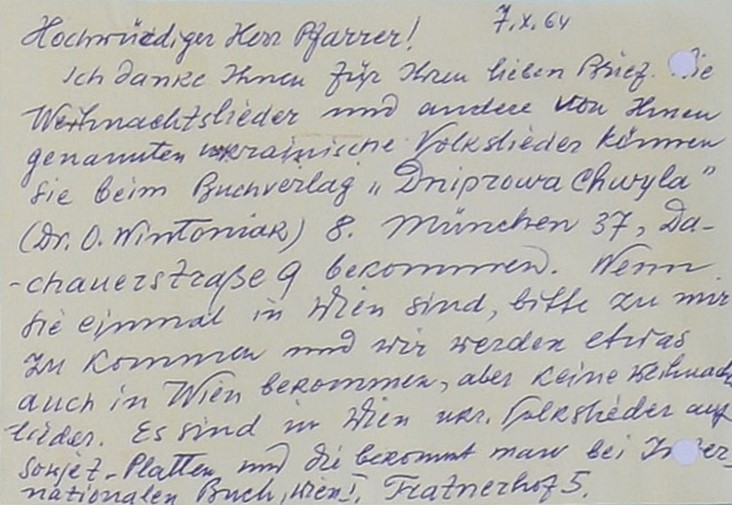 7.X.64
Hochwürdiger Herr Pfarrer!
Ich danke Ihnen für Ihren lieben Brief. Die
Weihnachtslieder und andere von Ihnen
genannten ukrainische Volkslieder können
Sie beim Buchverlag „Dniprowa Chwyla"
(Dr. O. Wintoniak) 8. München 37, Da-
-chauerstraße 9 bekommen. Wenn
Sie einmal in Wien sind, bitte zu mir
zu kommen und wir werden etwas
auch in Wien bekommen, aber keine Weihnachts
lieder. Es sind in Wien ukr. Volkslieder auf
Sowjet-Platten und die bekommt man bei Inter-
nationalen Buch, Wien I, Tratnerhof 5.